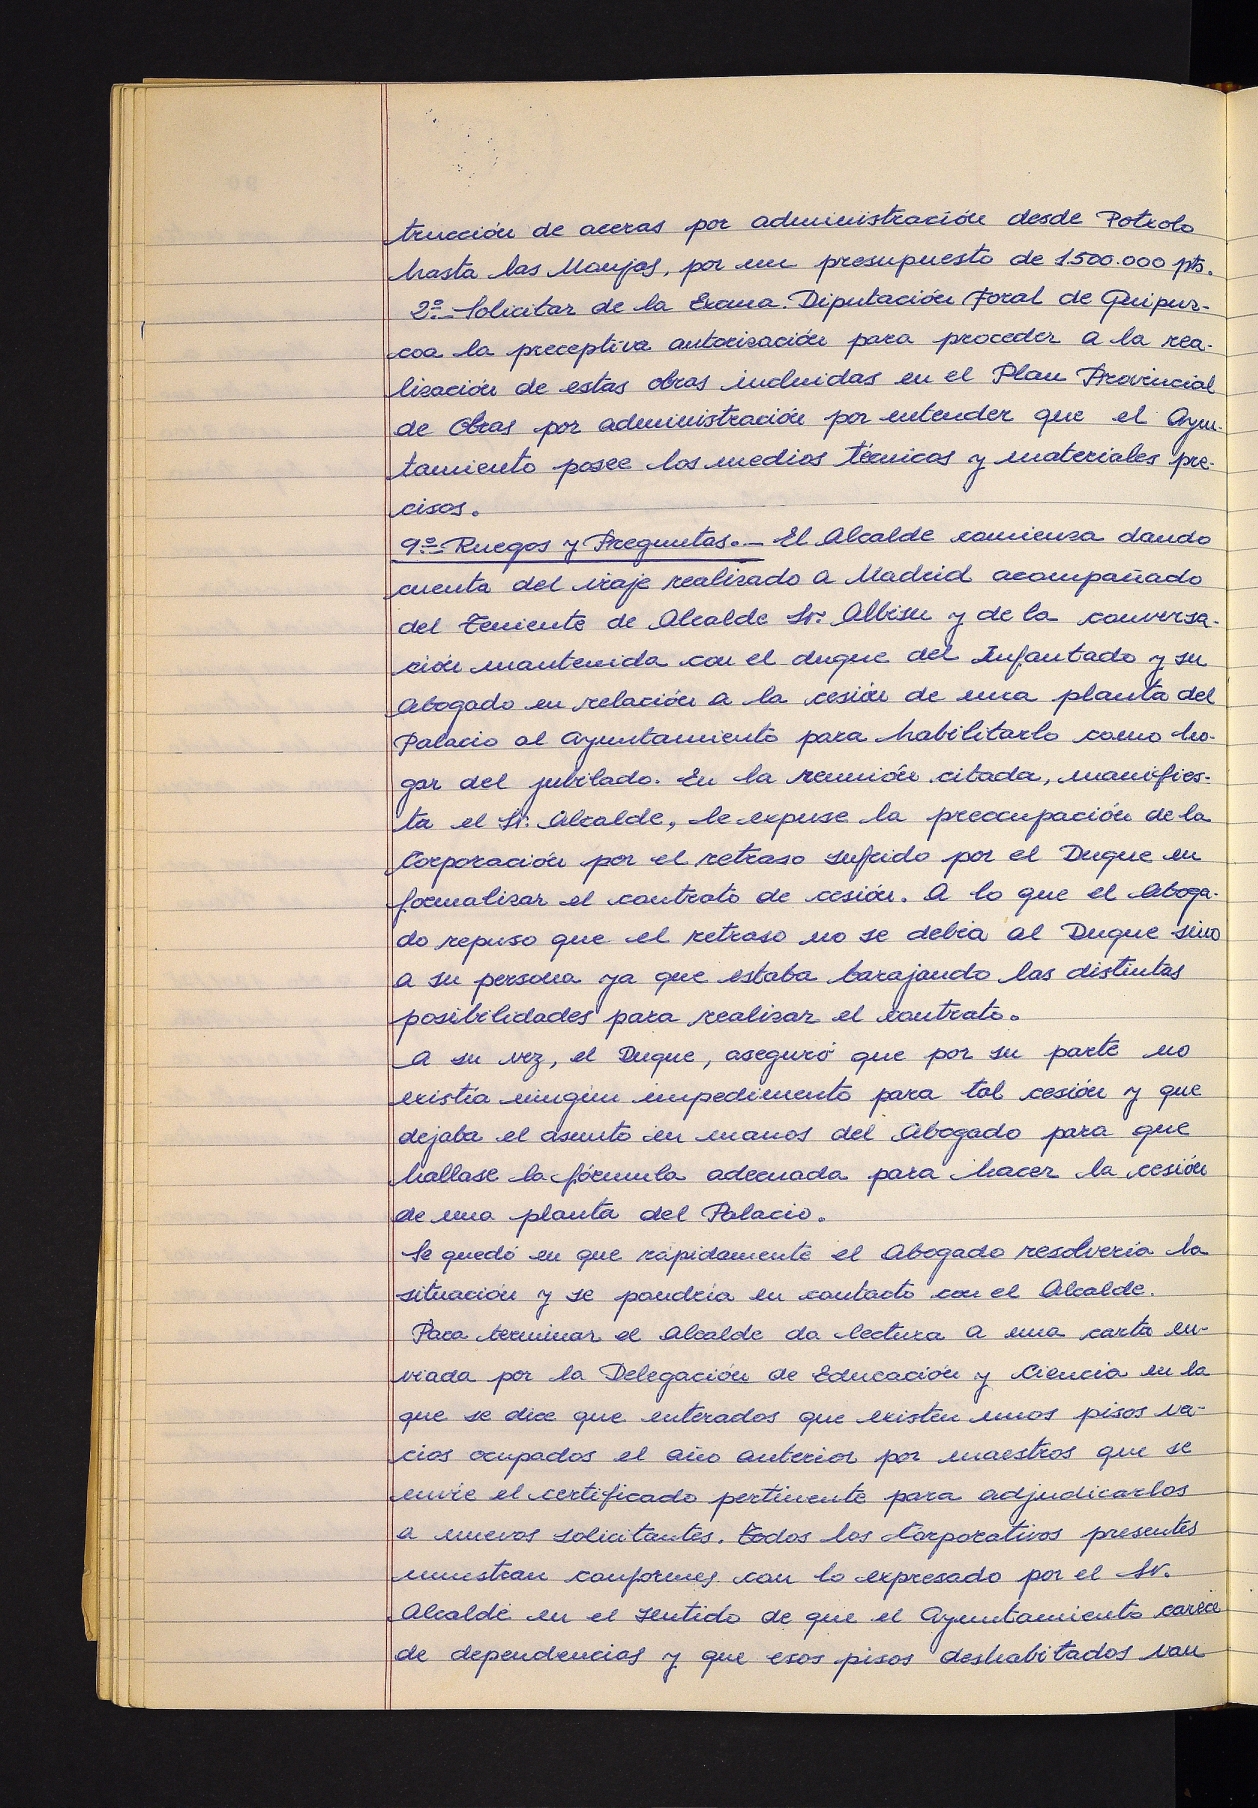 trucción de aceras por administración desde Potxolo
hasta las Monjas, por un presupuesto de 1.500.000 pts.
2º- Solicitar de la Excma. Diputación Foral de Guipuz-
coa la preceptiva autorización para proceder a la rea-
lización de estas obras incluidas en el Plan Provincial
de Obras por administración por entender que el Ayun-
tamiento posee los medios técnicos y materiales pre-
cisos.
9º- Ruegos y Preguntas.- El Alcalde comienza dando
cuenta del viaje realizado a Madrid acompañado
del Teniente de Alcalde Sr. Albisu y de la conversa-
ción mantenida con el duque del Infantado y su
Abogado en relación a la cesión de una planta del
Palacio al Ayuntamiento para habilitarlo como ho-
gar del jubilado. En la reunión citada, manifies-
ta el Sr. Alcalde, le expuse la preocupación de la
Corporación por el retraso sufrido por el Duque en
formalizar el contrato de cesión. A lo que el Aboga-
do repuso que el retraso no se debía al Duque sino
a su persona ya que estaba barajando las distintas
posibilidades para realizar el contrato.
A su vez, el Duque, aseguró que por su parte no
existía ningún impedimento para tal cesión y que
dejaba el asunto en manos del Abogado para que
hallase la fórmula adecuada para hacer la cesión
de una planta del Palacio.
Se quedó en que rápidamente el Abogado resolvería la
situación y se pondría en contacto con el Alcalde.
Para terminar el Alcalde da lectura a una carta en-
viada por la Delegación de Educación y Ciencia en la
que se dice que enterados que existen unos pisos va-
cios ocupados el año anterior por maestros que se
envíe el certificado pertinente para adjudicarlos
a nuevos solicitantes. Todos los Corporativos presentes
muestran conformes con lo expresado por el Sr.
Alcalde en el sentido de que el Ayuntamiento carece
de dependencias y que esos pisos deshabitados van